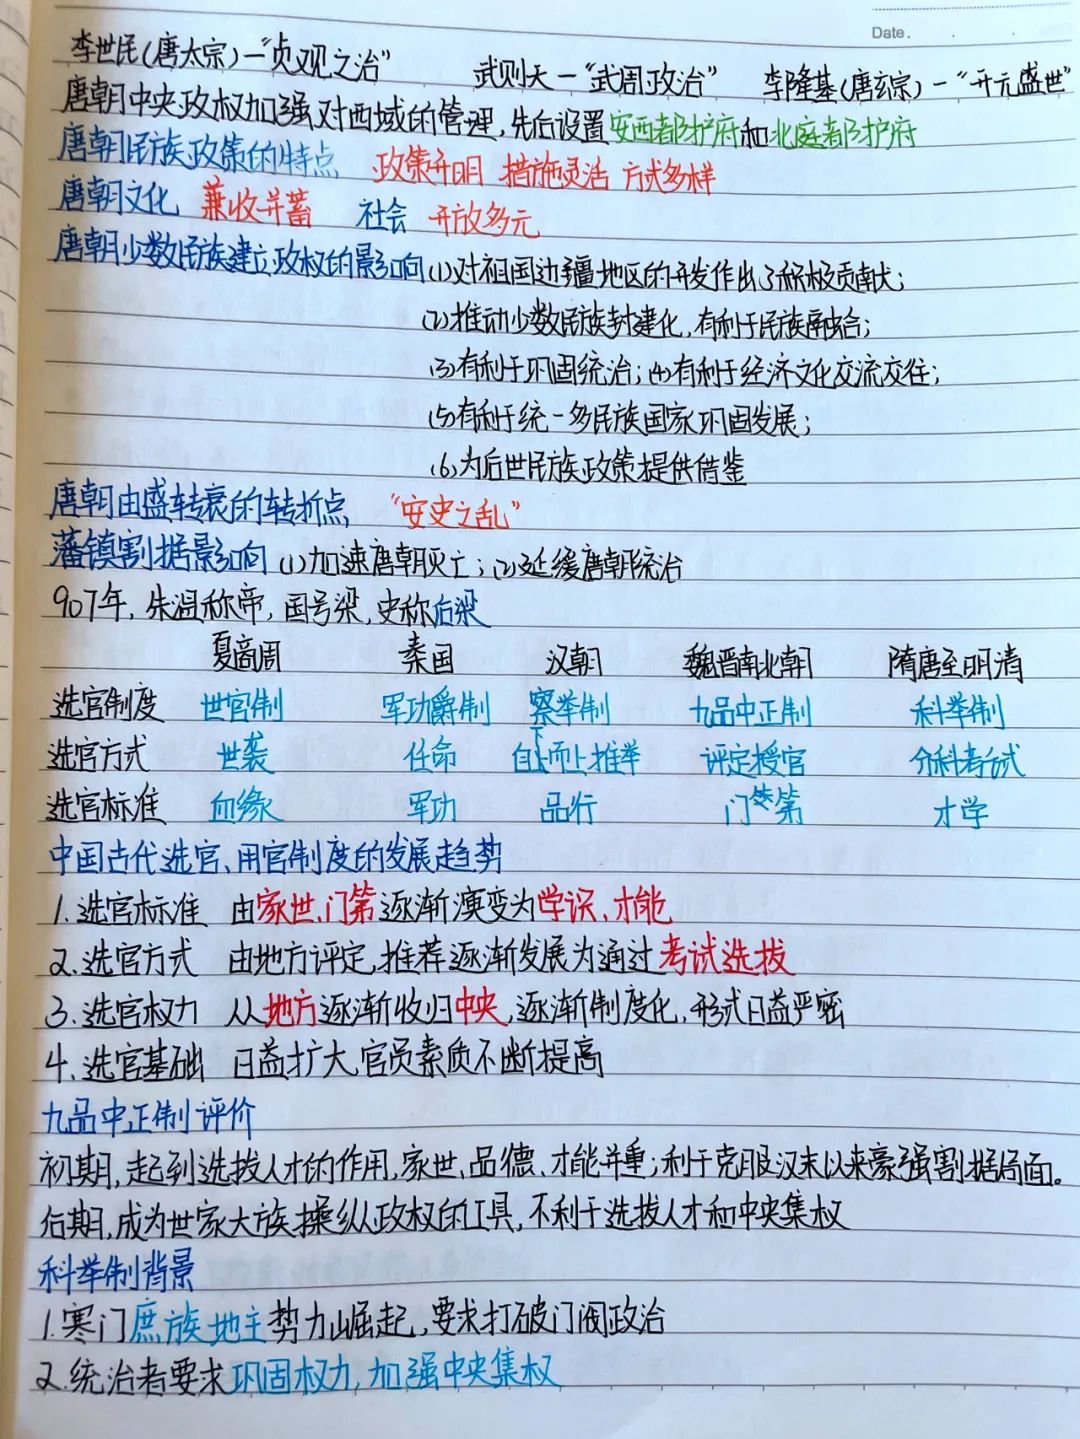 Date.
李世民(唐太宗)—“贞观之治” 武则天—“武周政治” 李隆基(唐玄宗)—“开元盛世”
唐朝中央政权加强对西域的管理,先后设置安西都护府和北庭都护府
唐朝民族政策的特点 政策开明 措施灵活 方式多样
唐朝文化 兼收并蓄 社会 开放多元
唐朝少数民族建立政权的影响(1)对祖国边疆地区的开发作出了积极贡献;
(2)推动少数民族封建化,有利于民族融合;
(3)有利于巩固统治;(4)有利于经济文化交流交往;
(5)有利于统一多民族国家巩固发展;
(6)为后世民族政策提供借鉴
唐朝由盛转衰的转折点 “安史之乱”
藩镇割据影响(1)加速唐朝灭亡;(2)延缓唐朝统治
907年,朱温称帝,国号梁,史称后梁
夏商周 秦国 汉朝 魏晋南北朝 隋唐至明清
选官制度 世官制 军功爵制 察举制 九品中正制 科举制
选官方式 世袭 任命 自下而上推举 评定授官 分科考试
选官标准 血缘 军功 品行 门第 才学
中国古代选官、用官制度的发展趋势
1.选官标准 由家世、门第逐渐演变为学识、才能
2.选官方式 由地方评定,推荐逐渐发展为通过考试选拔
3.选官权力 从地方逐渐收归中央,逐渐制度化,形式日益严密
4.选官基础 日益扩大,官员素质不断提高
九品中正制评价
初期,起到选拔人才的作用,家世、品德、才能并重;利于克服汉末以来豪强割据局面。
后期,成为世家大族操纵政权的工具,不利于选拔人才和中央集权
科举制背景
1.寒门庶族地主势力崛起,要求打破门阀政治
2.统治者要求巩固权力,加强中央集权